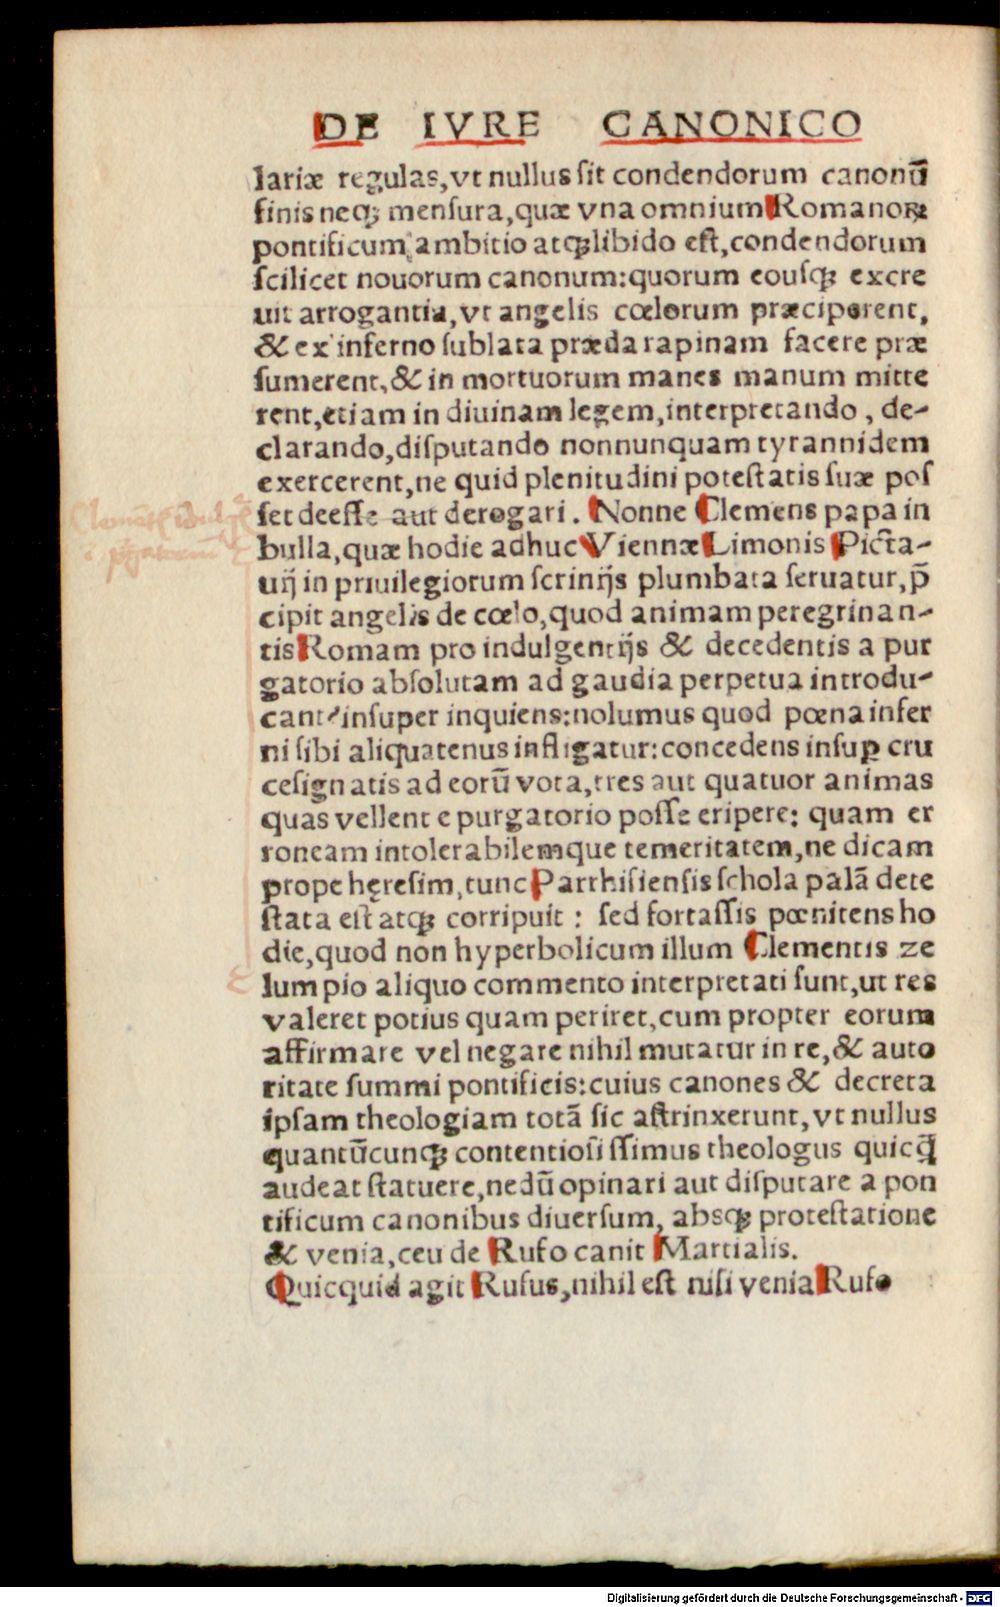 DE IVRE CANONICO
lariæ regulas, vt nullus sit condendorum canonū
finis neqꝫ mensura, quæ vna omnium Romanoꝝ
pontificum ambitio atqꝫ libido est, condendorum
scilicet nouorum canonum: quorum eousqꝫ excre
uit arrogantia, vt angelis cœlorum præciperent,
& ex inferno sublata præda rapinam facere præ
sumerent, & in mortuorum manes manum mitte
rent, etiam in diuinam legem, interpretando, de-
clarando, disputando nonnunquam tyrannidem
exercerent, ne quid plenitudini potestatis suæ pos
set deesse aut derogari. Nonne Clemens papa in
bulla, quæ hodie adhuc Viennæ Limonis Picta-
uij in priuilegiorum scrinijs plumbata seruatur, p̄
cipit angelis de cœlo, quod animam peregrinan-
tis Romam pro indulgentijs & decedentis a pur
gatorio absolutam ad gaudia perpetua introdu-
cant insuper inquiens: nolumus quod pœna infer
ni sibi aliquatenus infligatur: concedens insuꝑ cru
cesignatis ad eorū vota, tres aut quatuor animas
quas vellent e purgatorio posse eripere: quam er
roneam intolerabilemque temeritatem, ne dicam
prope hęresim, tunc Parrhisiensis schola palā dete
stata est atqꝫ corripuit: sed fortassis pœnitens ho
die, quod non hyperbolicum illum Clementis ze
lum pio aliquo commento interpretati sunt, ut res
valeret potius quam periret, cum propter eorum
affirmare vel negare nihil mutatur in re, & auto
ritate summi pontificis: cuius canones & decreta
ipsam theologiam totā sic astrinxerunt, vt nullus
quantūcunqꝫ contentiosissimus theologus quicq̄
audeat statuere, nedū opinari aut disputare a pon
tificum canonibus diuersum, absqꝫ protestatione
& venia, ceu de Rufo canit Martialis.
Quicquid agit Rufus, nihil est nisi venia Rufo
Digitalisierung gefördert durch die Deutsche Forschungsgemeinschaft - DFG